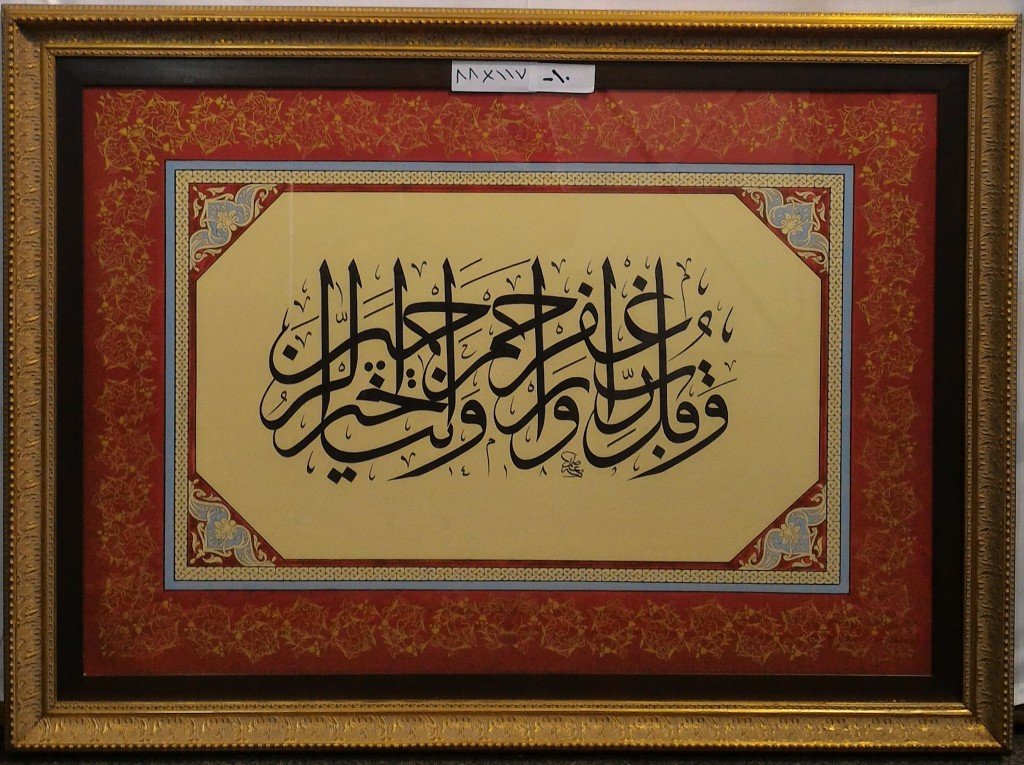 ٨٨×١١٧
وَقُل رَّبِّ اغْفِرْ وَارْحَمْ وَأَنتَ خَيْرُ الرَّاحِمِينَ
١٤١٨